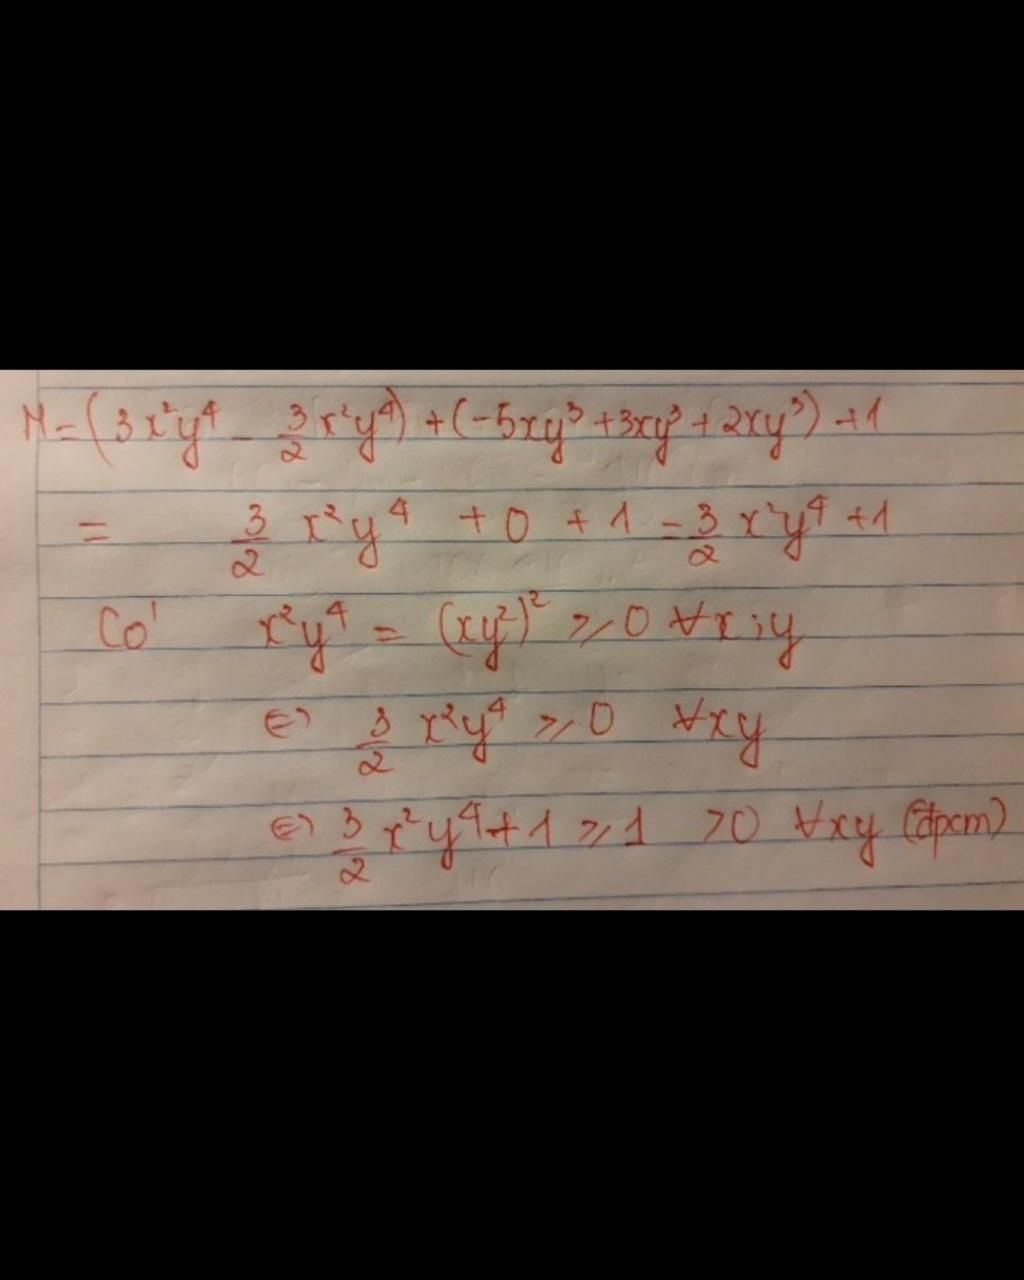 M = (3x²y⁴ - 3/2 x²y⁴) + (-5xy³ + 3xy³ + 2xy³) + 1
= 3/2 x²y⁴ + 0 + 1 = 3/2 x²y⁴ + 1
Có x²y⁴ = (xy²)² ⩾ 0 ∀x;y
⇔ 3/2 x²y⁴ ⩾ 0 ∀xy
⇔ 3/2 x²y⁴ + 1 ⩾ 1 > 0 ∀xy (đpcm)